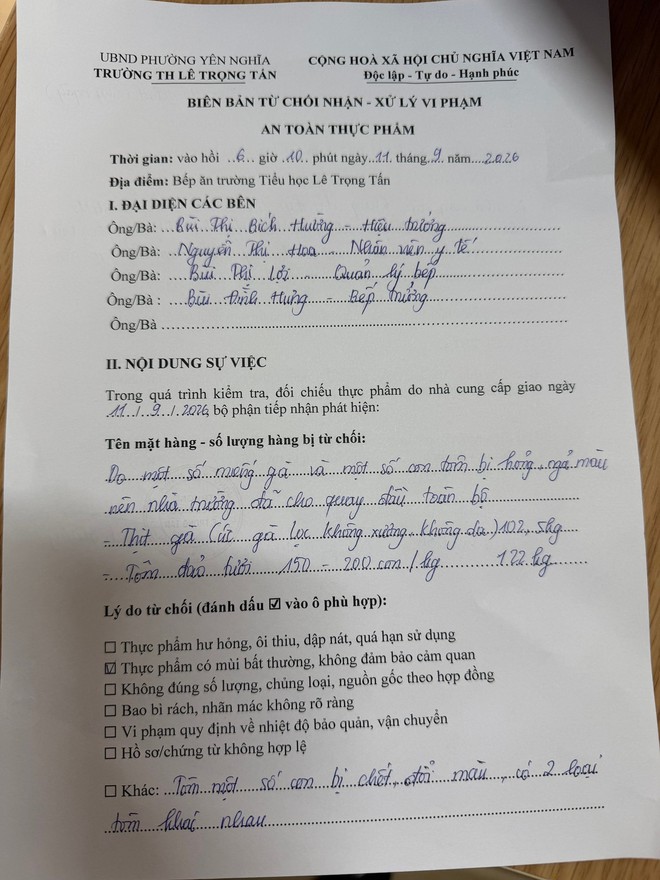 UBND PHƯỜNG YÊN NGHĨA
TRƯỜNG TH LÊ TRỌNG TẤN
CỘNG HOÀ XÃ HỘI CHỦ NGHĨA VIỆT NAM
Độc lập - Tự do - Hạnh phúc
BIÊN BẢN TỪ CHỐI NHẬN - XỬ LÝ VI PHẠM
AN TOÀN THỰC PHẨM
Thời gian: vào hồi ..6.. giờ ..10.. phút ngày..11.. tháng..9.. năm....2026
Địa điểm: Bếp ăn trường Tiểu học Lê Trọng Tấn
I. ĐẠI DIỆN CÁC BÊN
Ông/Bà: Bùi Thị Bích Hường - Hiệu trưởng
Ông/Bà: Nguyễn Thị Hoa - Nhân viên y tế
Ông/Bà: Bùi Thị Lợi - Quản lý bếp
Ông/Bà : Bùi Đình Hưng - Bếp trưởng
Ông/Bà
II. NỘI DUNG SỰ VIỆC
Trong quá trình kiểm tra, đối chiếu thực phẩm do nhà cung cấp giao ngày
11 / 9 / 2026, bộ phận tiếp nhận phát hiện:
Tên mặt hàng - số lượng hàng bị từ chối:
Do một số miếng gà và một số con tôm bị hỏng, ngả màu
nên nhà trường đã cho quay đầu toàn bộ
- Thịt gà (ức gà lọc không xương, không da) 102,5kg
- Tôm đảo tươi 150 - 200 con / kg 122 kg
Lý do từ chối (đánh dấu ☑ vào ô phù hợp):
☐ Thực phẩm hư hỏng, ôi thiu, dập nát, quá hạn sử dụng
☑ Thực phẩm có mùi bất thường, không đảm bảo cảm quan
☐ Không đúng số lượng, chủng loại, nguồn gốc theo hợp đồng
☐ Bao bì rách, nhãn mác không rõ ràng
☐ Vi phạm quy định về nhiệt độ bảo quản, vận chuyển
☐ Hồ sơ/chứng từ không hợp lệ
☐ Khác: Tôm một số con bị chết, đổi màu, có 2 loại
tôm khác nhau